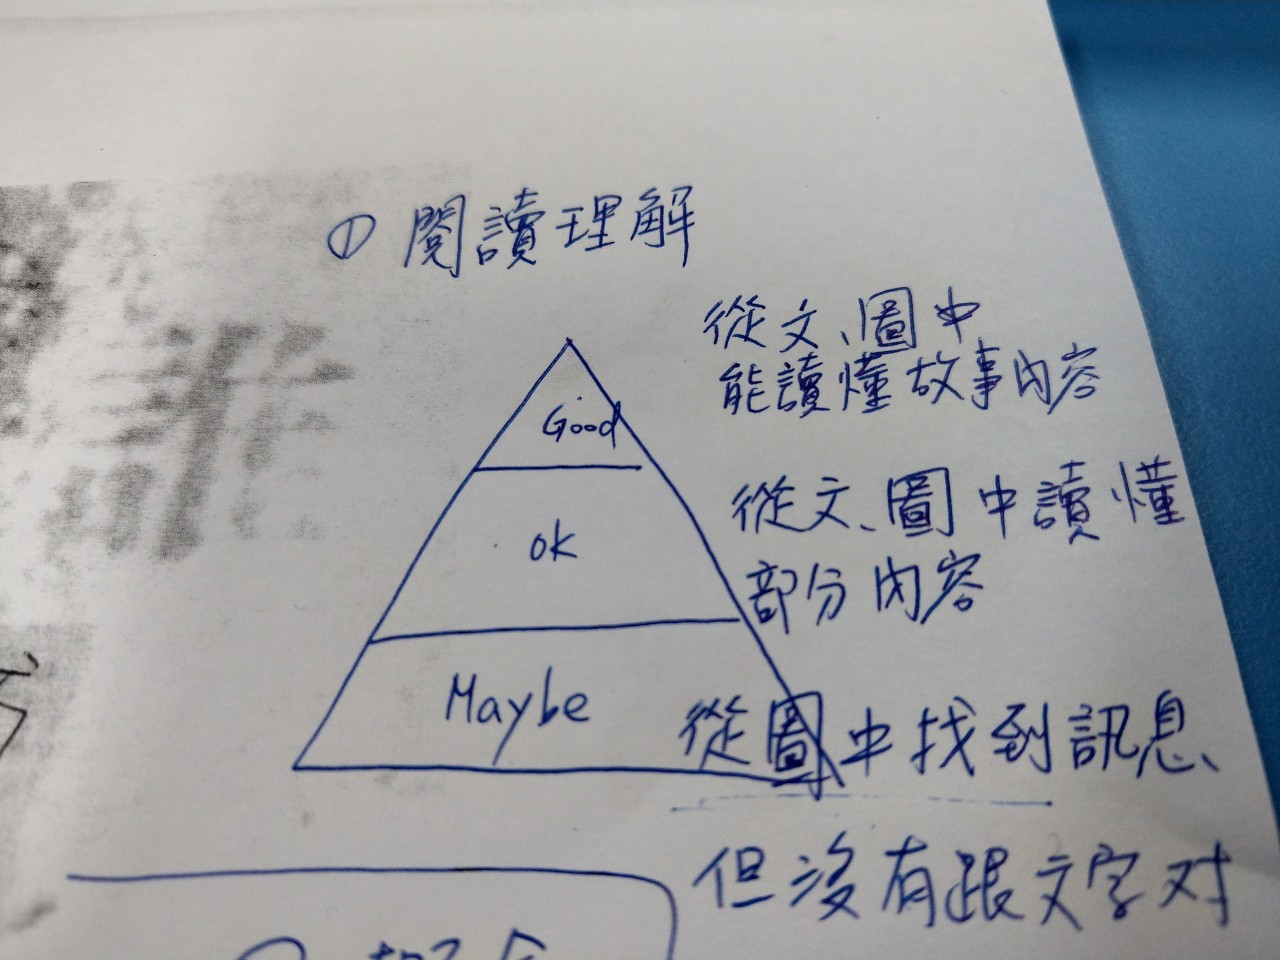 ① 閱讀理解
從文、圖中
能讀懂故事內容
Good
從文、圖中讀懂
部分內容
ok
Maybe
從圖中找到訊息、
但沒有跟文字对